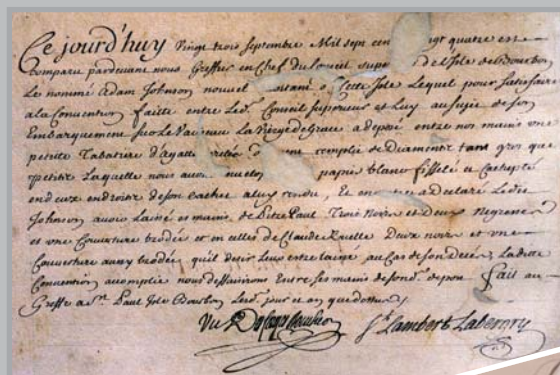 Ce jourd'huy Vingt trois Septembre Mil sept cen ingt quatre est
comparu pardevant nous Greffier en Chef du Conseil supe de l'Isle de Bourbon
Le nommé adam Johnson nouvel à Cette Isle Lequel pour satisfaire
a la Convention faitte entre Led. Conseil superieur et Luy au sujet de son
Embarquement sur Le Vaisseau La Vierge de Grace a deposé entre nos mains une
petite Tabatiere d'agatte remplie de Diamants tant gros que
petits Laquelle nous avons papier blanc ficellé et Cacheté
en deux endroits de son cachet a luy rendu, Et a declaré Ledit
Johnson avoir Laissé es mains de Paul Trois Noirs et Deux Negresses
et une Couverture brodée et en celles de Claude Ruelle Deux noirs et une
Couverture aussy brodée qu'il desir Leur estre laissé au Cas de son Decés, Ladite
Convention accomplie nous dessaisirons Entre les mains de fait au
Greffe a St. Paul Isle Bourbon Led. jour et an que dessus
Vu St Lambert Labergry